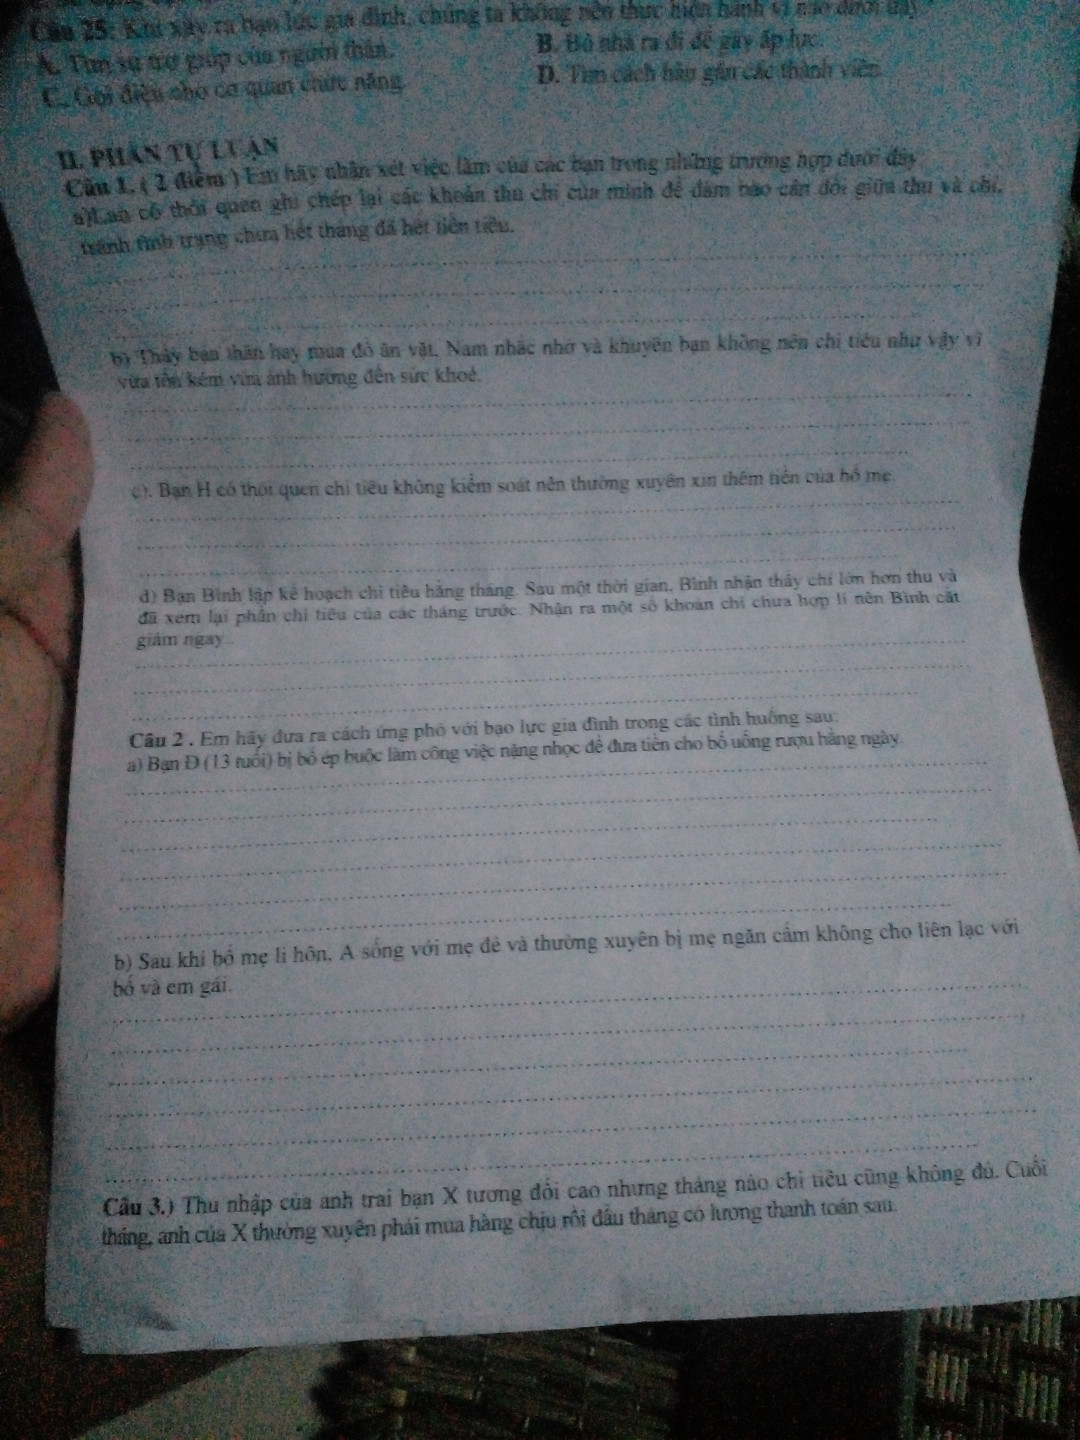 Câu 25: Khi xảy ra bạo lực gia đình, chúng ta không nên thực hiện hành vi nào dưới đây
A. Tìm sự trợ giúp của người thân.
B. Bỏ nhà ra đi để gây áp lực.
C. Gọi điện cho cơ quan chức năng.
D. Tìm cách hàn gắn các thành viên.
II. PHẦN TỰ LUẬN
Câu 1. ( 2 điểm ) Em hãy nhận xét việc làm của các bạn trong những trường hợp dưới đây
a)Lan có thói quen ghi chép lại các khoản thu chi của mình để đảm bảo cân đối giữa thu và chi,
tránh tình trạng chưa hết tháng đã hết tiền tiêu.
b) Thấy bạn thân hay mua đồ ăn vặt, Nam nhắc nhở và khuyên bạn không nên chi tiêu như vậy vì
vừa tốn kém vừa ảnh hưởng đến sức khoẻ.
c). Bạn H có thói quen chi tiêu không kiểm soát nên thường xuyên xin thêm tiền của bố mẹ.
d) Bạn Bình lập kế hoạch chi tiêu hằng tháng. Sau một thời gian, Bình nhận thấy chi lớn hơn thu và
đã xem lại phần chi tiêu của các tháng trước. Nhận ra một số khoản chi chưa hợp lí nên Bình cắt
giảm ngay
Câu 2 . Em hãy đưa ra cách ứng phó với bạo lực gia đình trong các tình huống sau:
a) Bạn Đ (13 tuổi) bị bố ép buộc làm công việc nặng nhọc để đưa tiền cho bố uống rượu hằng ngày.
b) Sau khi bố mẹ li hôn, A sống với mẹ đẻ và thường xuyên bị mẹ ngăn cấm không cho liên lạc với
bố và em gái.
Câu 3.) Thu nhập của anh trai bạn X tương đối cao nhưng tháng nào chi tiêu cũng không đủ. Cuối
tháng, anh của X thường xuyên phải mua hàng chịu rồi đầu tháng có lương thanh toán sau.